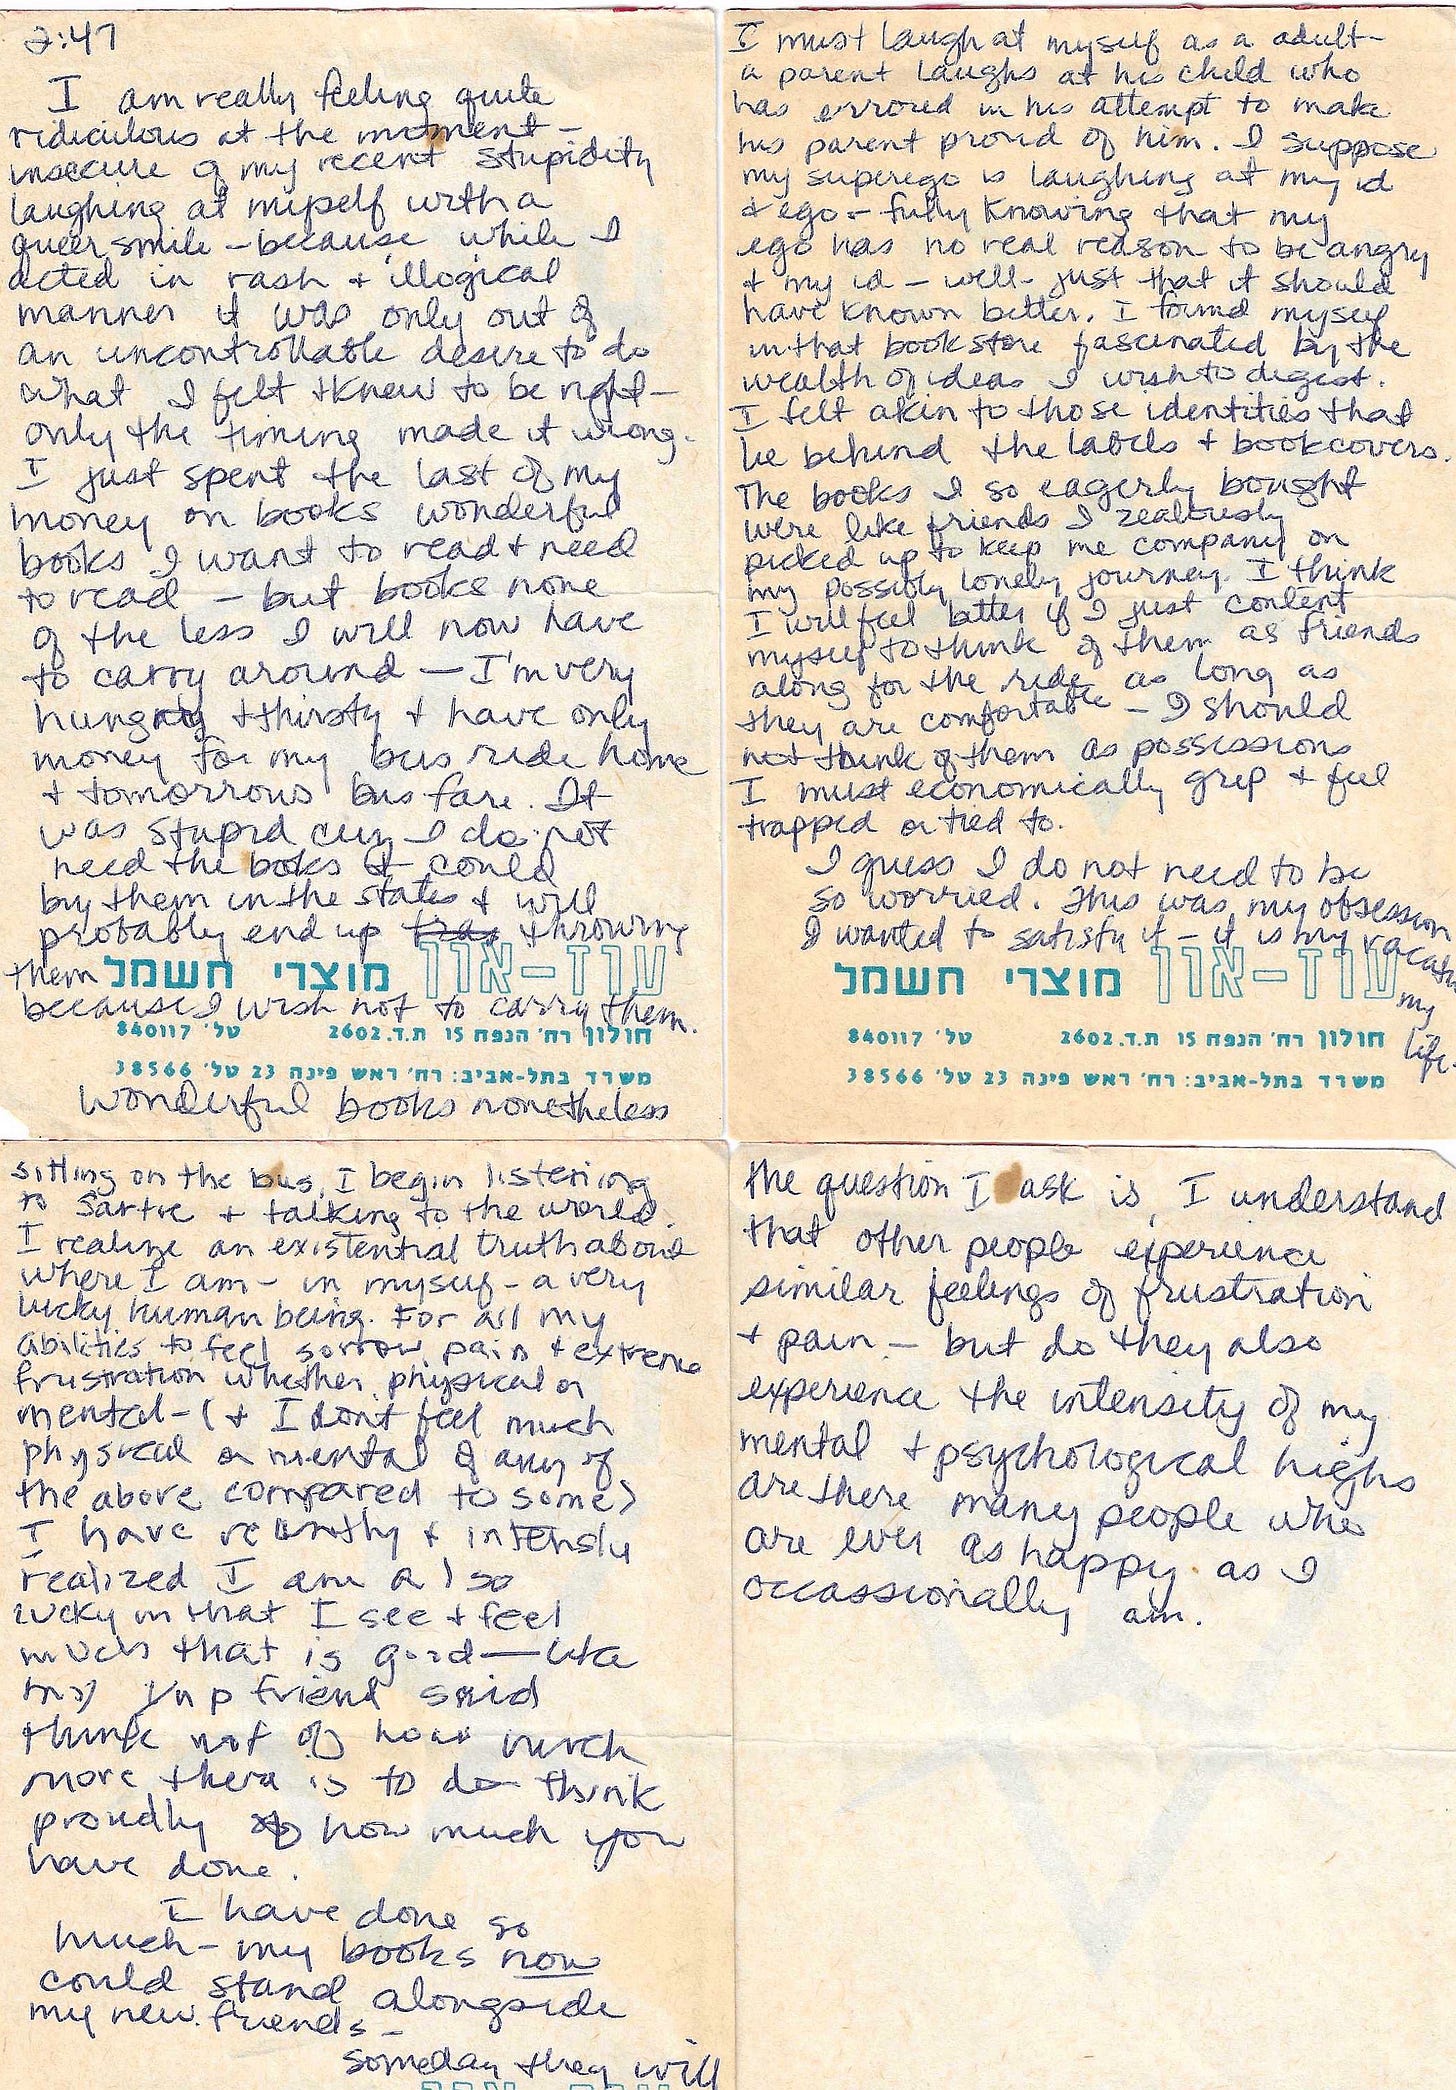 2:47
I am really feeling quite
ridiculous at the moment –
insecure of my recent stupidity
laughing at myself with a
queer smile – because while I
acted in rash + illogical
manner it was only out of
an uncontrollable desire to do
what I felt + knew to be right –
only the timing made it wrong.
I just spent the last of my
money on books wonderful
books I want to read + need
to read – but books none
of the less I will now have
to carry around – I'm very
hungry + thirsty + have only
money for my bus ride home
+ tomorrows bus fare. It
was stupid cuz I do not
need the books & could
by them in the states + will
probably end up throwing
them
because I wish not to carry them.
עוז-און מוצרי חשמל
חולון רח' הנפח 15 ת.ד. 2602 טל' 840117
משרד בתל-אביב: רח' ראש פינה 23 טל' 38566
wonderful books nonetheless
I must laugh at myself as a adult –
a parent laughs at his child who
has errored in his attempt to make
his parent proud of him. I suppose
my superego is laughing at my id
+ ego – fully knowing that my
ego has no real reason to be angry
+ my id – well – just that it should
have known better. I found myself
in that bookstore fascinated by the
wealth of ideas I wish to digest.
I felt akin to those identities that
lie behind the labels + bookcovers.
The books I so eagerly bought
were like friends I zealously
picked up to keep me company on
my possibly lonely journey. I think
I will feel better if I just content
myself to think of them as friends
along for the ride as long as
they are comfortable – I should
not think of them as possessions
I must economically grip + feel
trapped or tied to.
I guess I do not need to be
so worried. This was my obsession
I wanted to satisfy it – it is my vacation
my
life.
עוז-און מוצרי חשמל
חולון רח' הנפח 15 ת.ד. 2602 טל' 840117
משרד בתל-אביב: רח' ראש פינה 23 טל' 38566
sitting on the bus, I begin listening
to Sartre + talking to the world.
I realize an existential truth about
where I am – in myself – a very
lucky human being. For all my
abilities to feel sorrow, pain + extreme
frustration whether physical or
mental – (+ I don't feel much
physical or mental & any of
the above compared to some)
I have recently + intensly
realized I am also
lucky in that I see + feel
much that is good – like
my friend said
think not of how much
more there is to do think
proudly of how much you
have done.
I have done so
much – my books now
could stand alongside
my new friends –
someday they will
the question I ask is, I understand
that other people experience
similar feelings of frustration
+ pain – but do they also
experience the intensity of my
mental + psychological highs
are there many people who
are ever as happy as I
occassionally am.